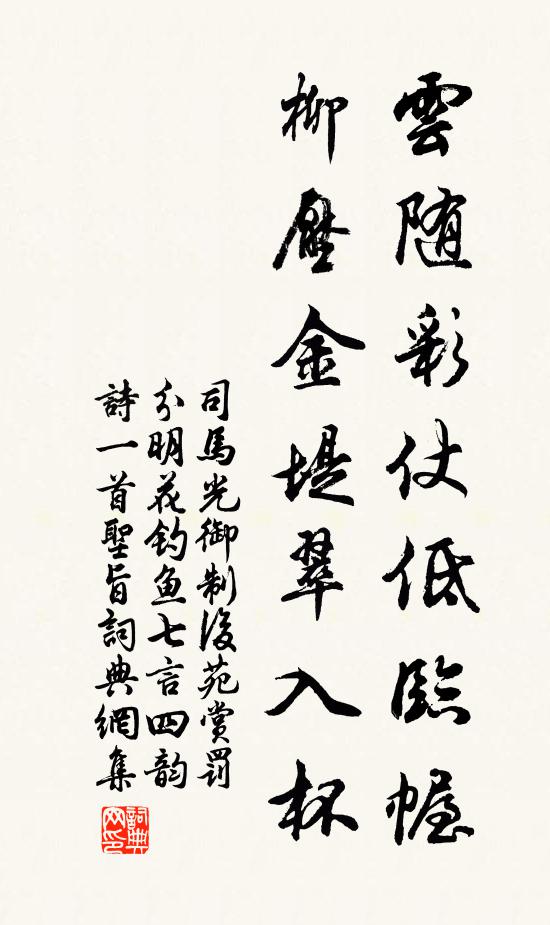 雲随彩仗低臨幄
柳壓金堤翠入杯
司馬光御制後苑賞罰
分明花釣魚七言四韵
詩一首聖旨詞典網集
詞典网印